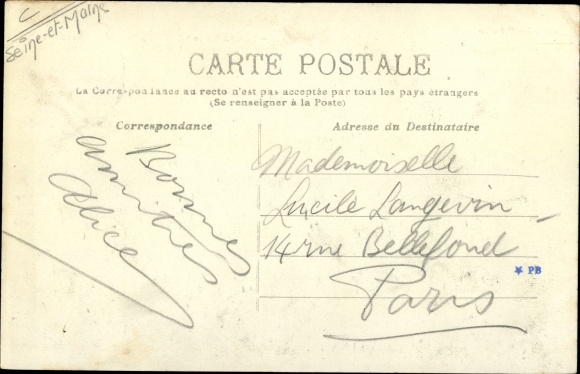 C
Seine-et-Marne
CARTE POSTALE
La Correspondance au recto n'est pas acceptée par tous les pays étrangers
(Se renseigner à la Poste)
Correspondance
Bonnes
amitiés
Alice
Adresse du Destinataire
Mademoiselle
Lucile Langevin
14 rue Bellefond
Paris
PB